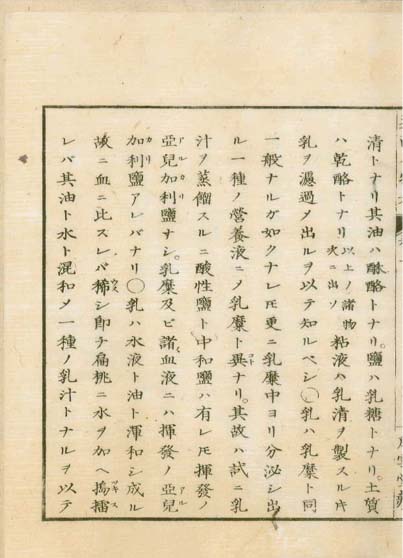 清トナリ其油ハ酥酪トナリ。鹽ハ乳糖トナリ。土質
ハ乾酪トナリ以上ノ諸物次ニ出ソ粘液ハ乳清ヲ製スル𪜈
乳ヲ濾過メ出ルヲ以テ知ルベシ○乳ハ乳糜ト同
一般ナルガ如クナレ𪜈更ニ乳糜中ヨリ分泌シ出
ル一種ノ營養液ニノ乳糜ト異ナリ。其故ハ試ニ乳
汁ヲ蒸餾スルニ酸性鹽ト中和鹽ハ有レ𪜈揮發ノ
亞兒加利鹽ナシ。乳糜及ビ諸血液ニハ揮發ノ亞兒
加利鹽アレバナリ○乳ハ水液ト油ト渾和シ成ル
故ニ血ニ比スレバ稀シ即チ扁桃ニ水ヲ加ヘ搗擂
レバ其油ト水ト混和メ一種ノ乳汁トナルヲ以テ